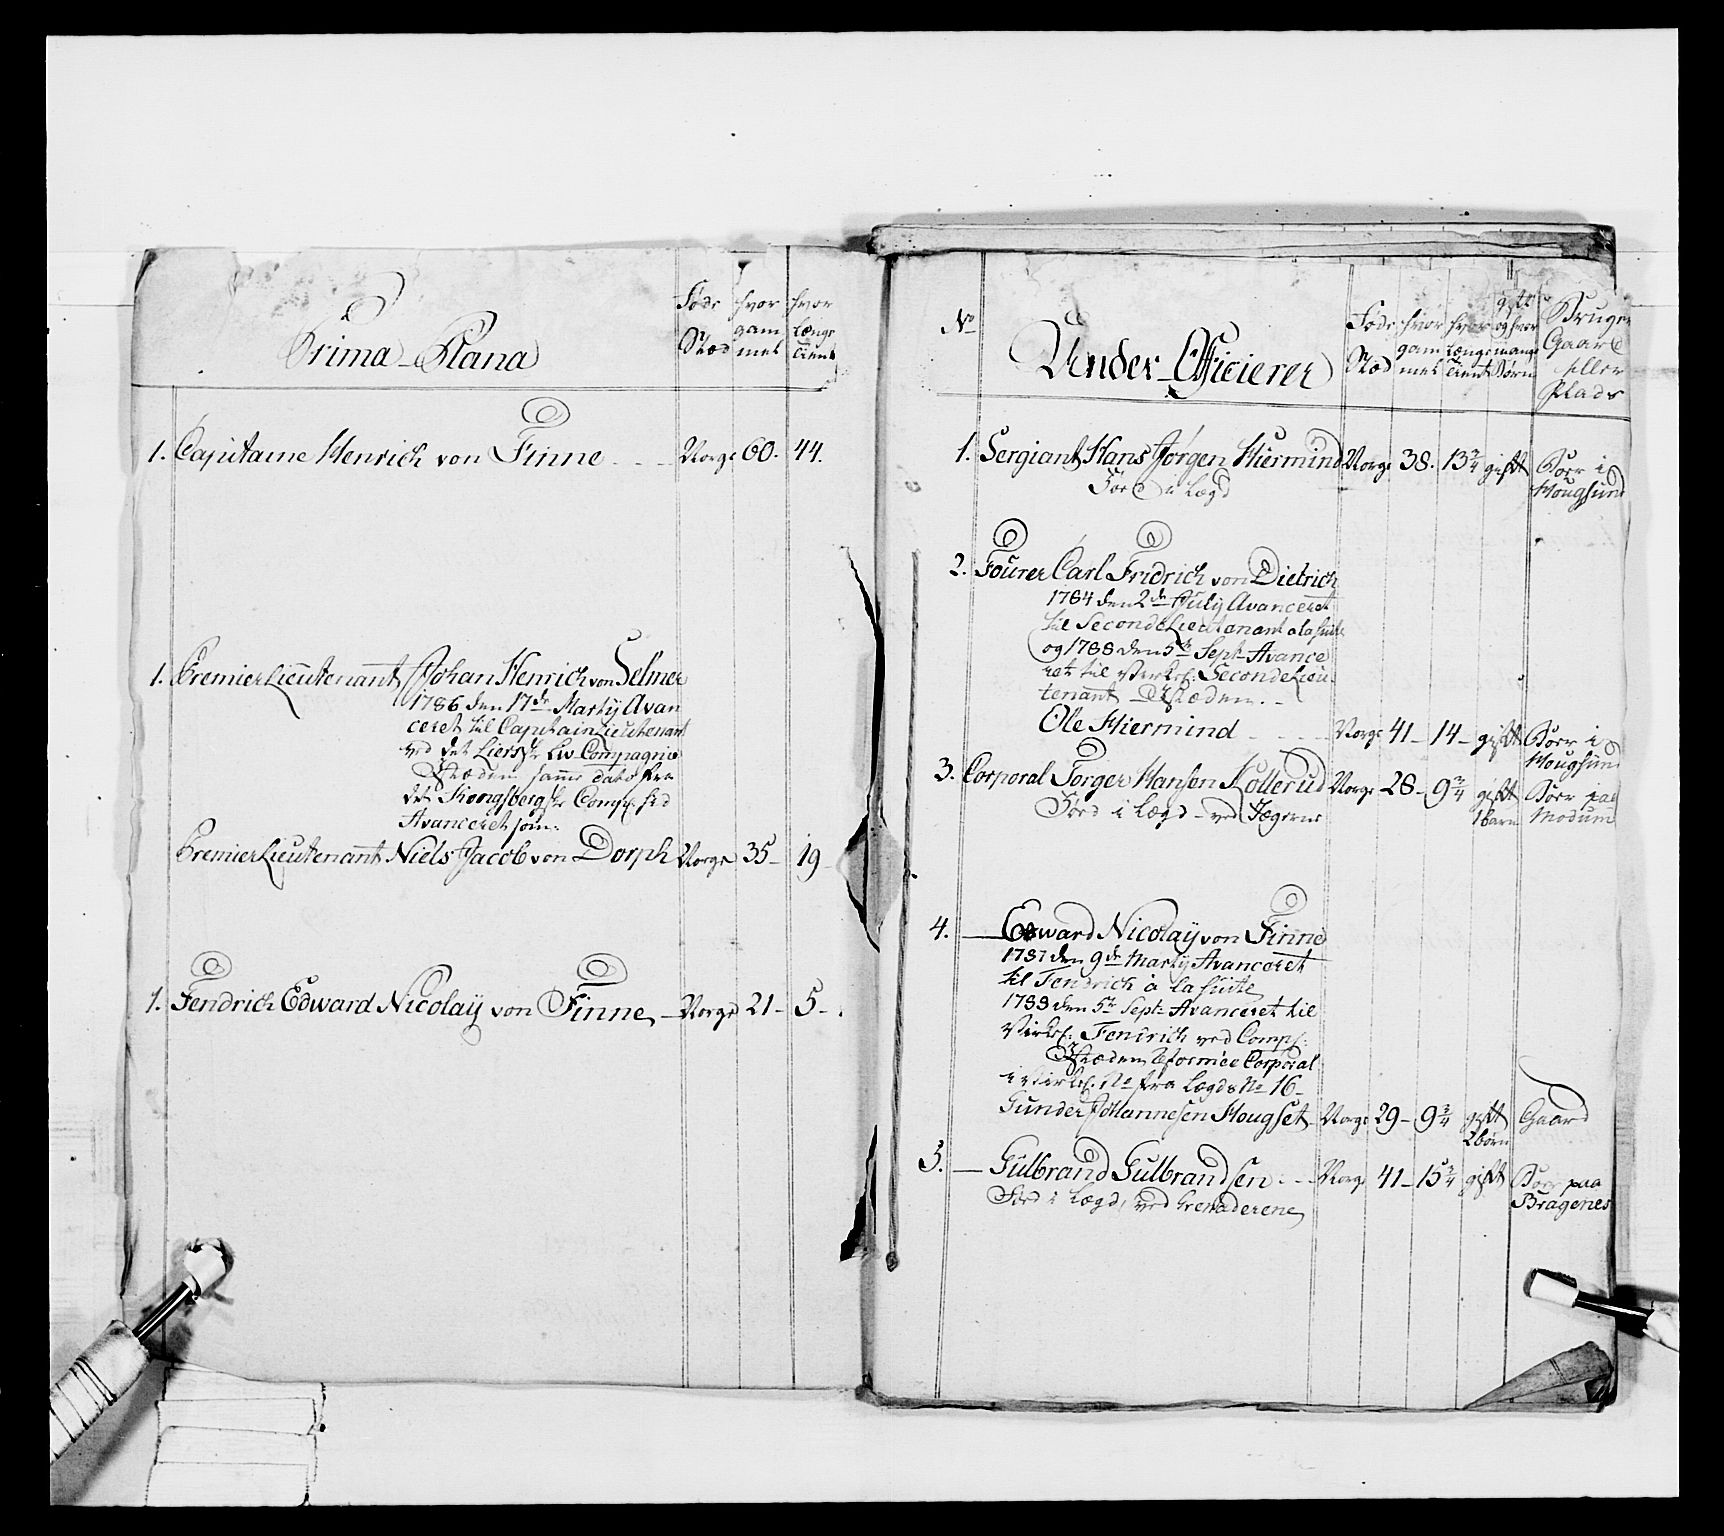 Prima-Plana
Føde Stæd
hvor gam mel
hvor længe tient
1. Capitaine Henrich von Finne - - - Norge 60. 44.
1. PremierLieutenannt Johan Henrich von Selmer
1786 den 17de Martij Avan
ceret til CapitainLieutenant
ved det Lierske Liv Compagnie
J Stæden samme dato fra
det Kongsbergske Comp:
Avanceret som:
PremierLieutenannt Niels Jacob von Dorph Norge 35- 19-
1. Fendrich Edward Nicolaij von Finne, - Norge 21- 5-
No
Under-Officierer
Føde Stæd
hvor gam mel
hvor længe tient
gift og hvor mange Børn
Bruger
Gaard
eller
Plads
1. Sergiant Hans Jørgen Hiermind Norge 38. 13 3/4 gift Boer i
Hougsund
Foer i Lægd
2. Fourer Carl Fridrich von Dietrich
1784 den 2de Julij Avanceret
til SecondeLieutenant a la suite
og 1788 den 5te Sept Avance
ret til Virkel: SecondeLieu
tenannt J Stæden. -
Ole Hiermind - - - - Norge 41- 14- gift Boer i
Hougsund
3. Corporal Torger Hansen Kollerud Norge 28- 9 3/4 gift Boer paa
1 barn Modum
i Lægd - ved Jægerne
4. — Edward Nicolaij von Finne
1787 den 9de Martij Avanceret
til Fendrich à la suite
1788 den 5te Sept: Avanceret til
Virkel: Fendrich ved Comp:
J Stæden Corporal
i Virkel. No fra Lægds No 16-
Gunder Johannesen Hougset- Norge 29- 9 3/4 gift Gaard
2 børn
5. — Gulbrand Gulbrandsen - - Norge 41- 15 3/4 gift Boer paa
Bragenes
i Lægd, ved Grenaderene,